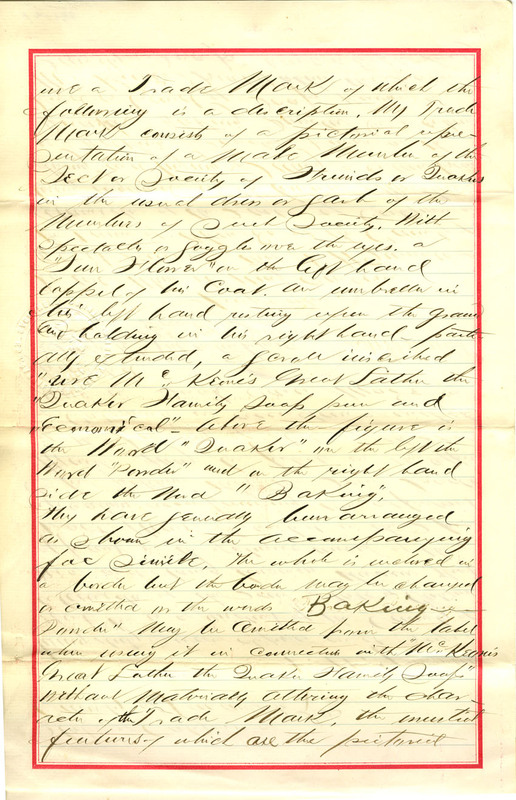 use a Trade Mark of which the
following is a description. My Trade
Mark consists of a pictorial repre-
sentation of a Male Member of the
Sect or Society of Friends or Quakers
in the usual dress or garb of the
Members of such Society. With
Spectacles or goggles over the eyes. a
"Sun Flower" on the left hand
lappel of his Coat. an umbrella in
his left hand resting upon the ground
and holding in his right hand parti-
ally extended, a Scroll inscribed
"use Mc Keone's Great Father the
"Quaker Family Soap pure and
Economical" - Above the figure is
the Word "Quaker" on the left the
Word "Powder" and on the right hand
side the Word "Baking",
they have generally been arranged
as shown in the accompanying
fac Simile, the whole is enclosed in
a border but the border may be changed
or omitted or the words Baking
Powder" May be omitted from the label
when using it in connection with "Mc Keone's
Great Father the Quaker Family Soap"
without Materially altering the char-
acter of the Trade Mark, the essential
features of which are the pictorial